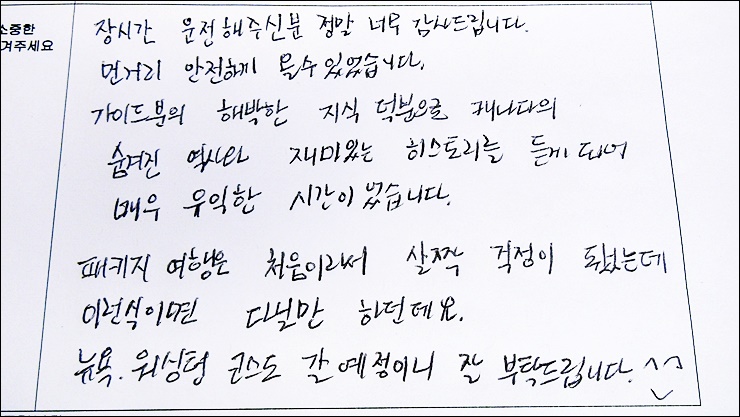 소중한
겨주세요
장시간 운전해주신분 정말 너무 감사드립니다.
먼거리 안전하게 올수있었습니다.
가이드분의 해박한 지식 덕분으로 캐나다의
숨겨진 역사와 재미있는 히스토리를 듣게 되어
매우 유익한 시간이었습니다.
패키지 여행은 처음이라서 살짝 걱정이 됬었는데
이런식이면 다닐만 하던데요.
뉴욕. 워싱턴 코스도 갈 예정이니 잘 부탁드립니다. ^^